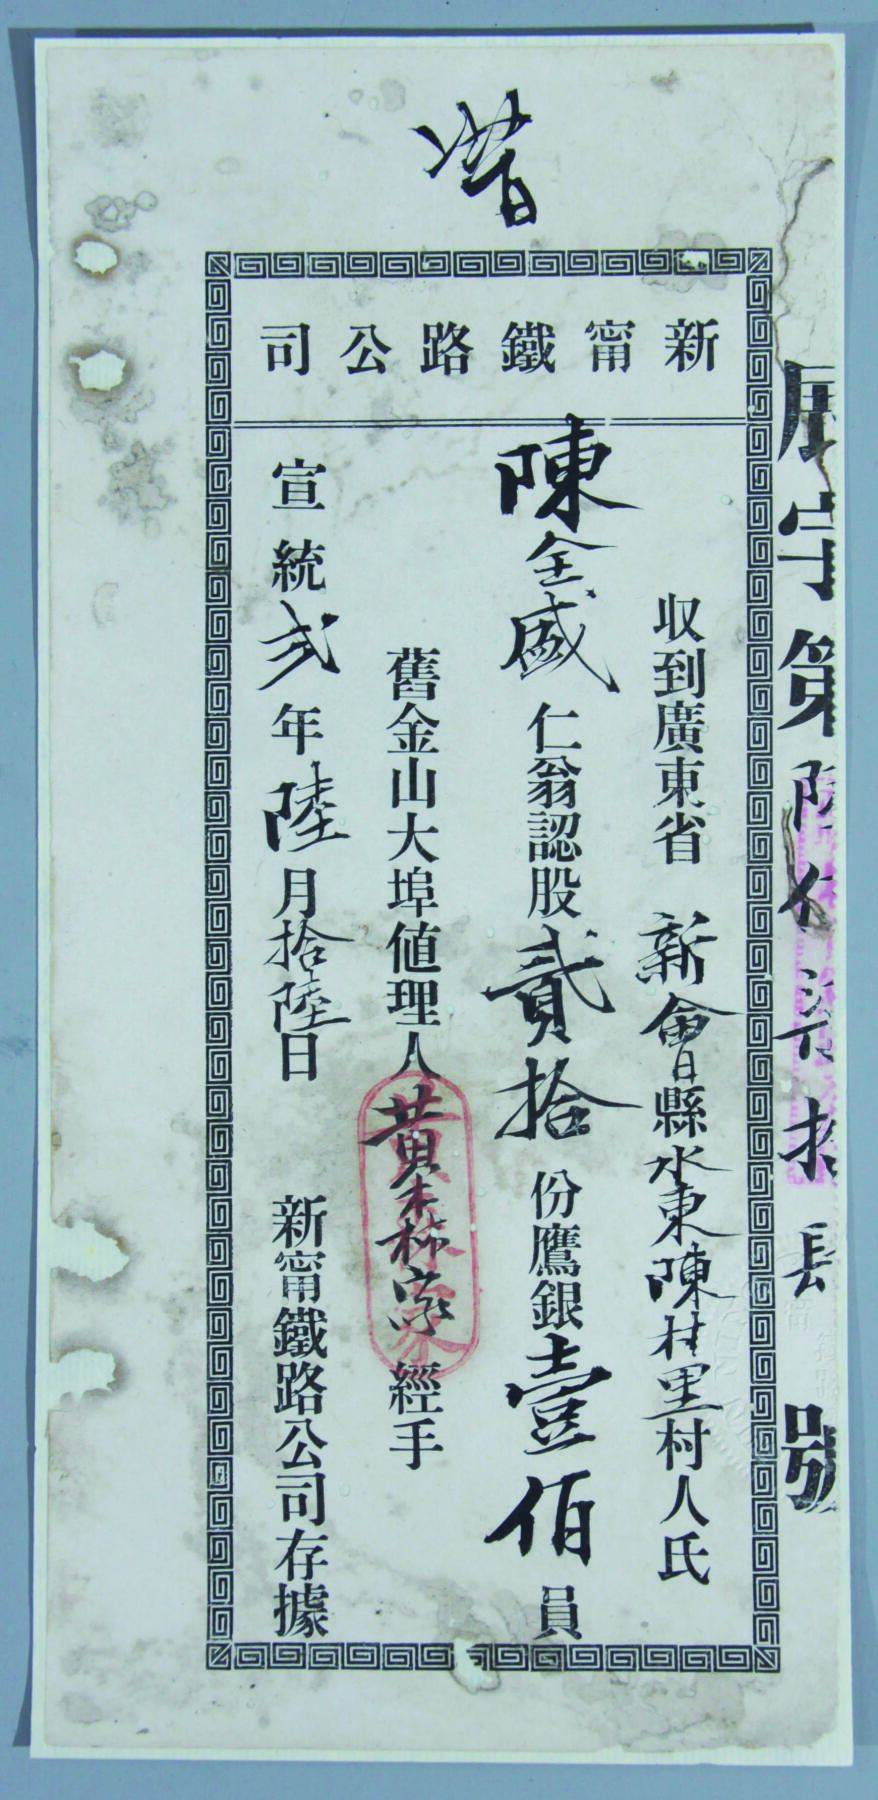 新甯鐵路公司
收到廣東省新會縣水東陳村里村人氏
陳全盛仁翁認股貳拾份鷹銀壹佰員
舊金山大埠值理人黃 經手
宣統弍年陸月拾陸日 新甯鐵路公司存據
字第 號